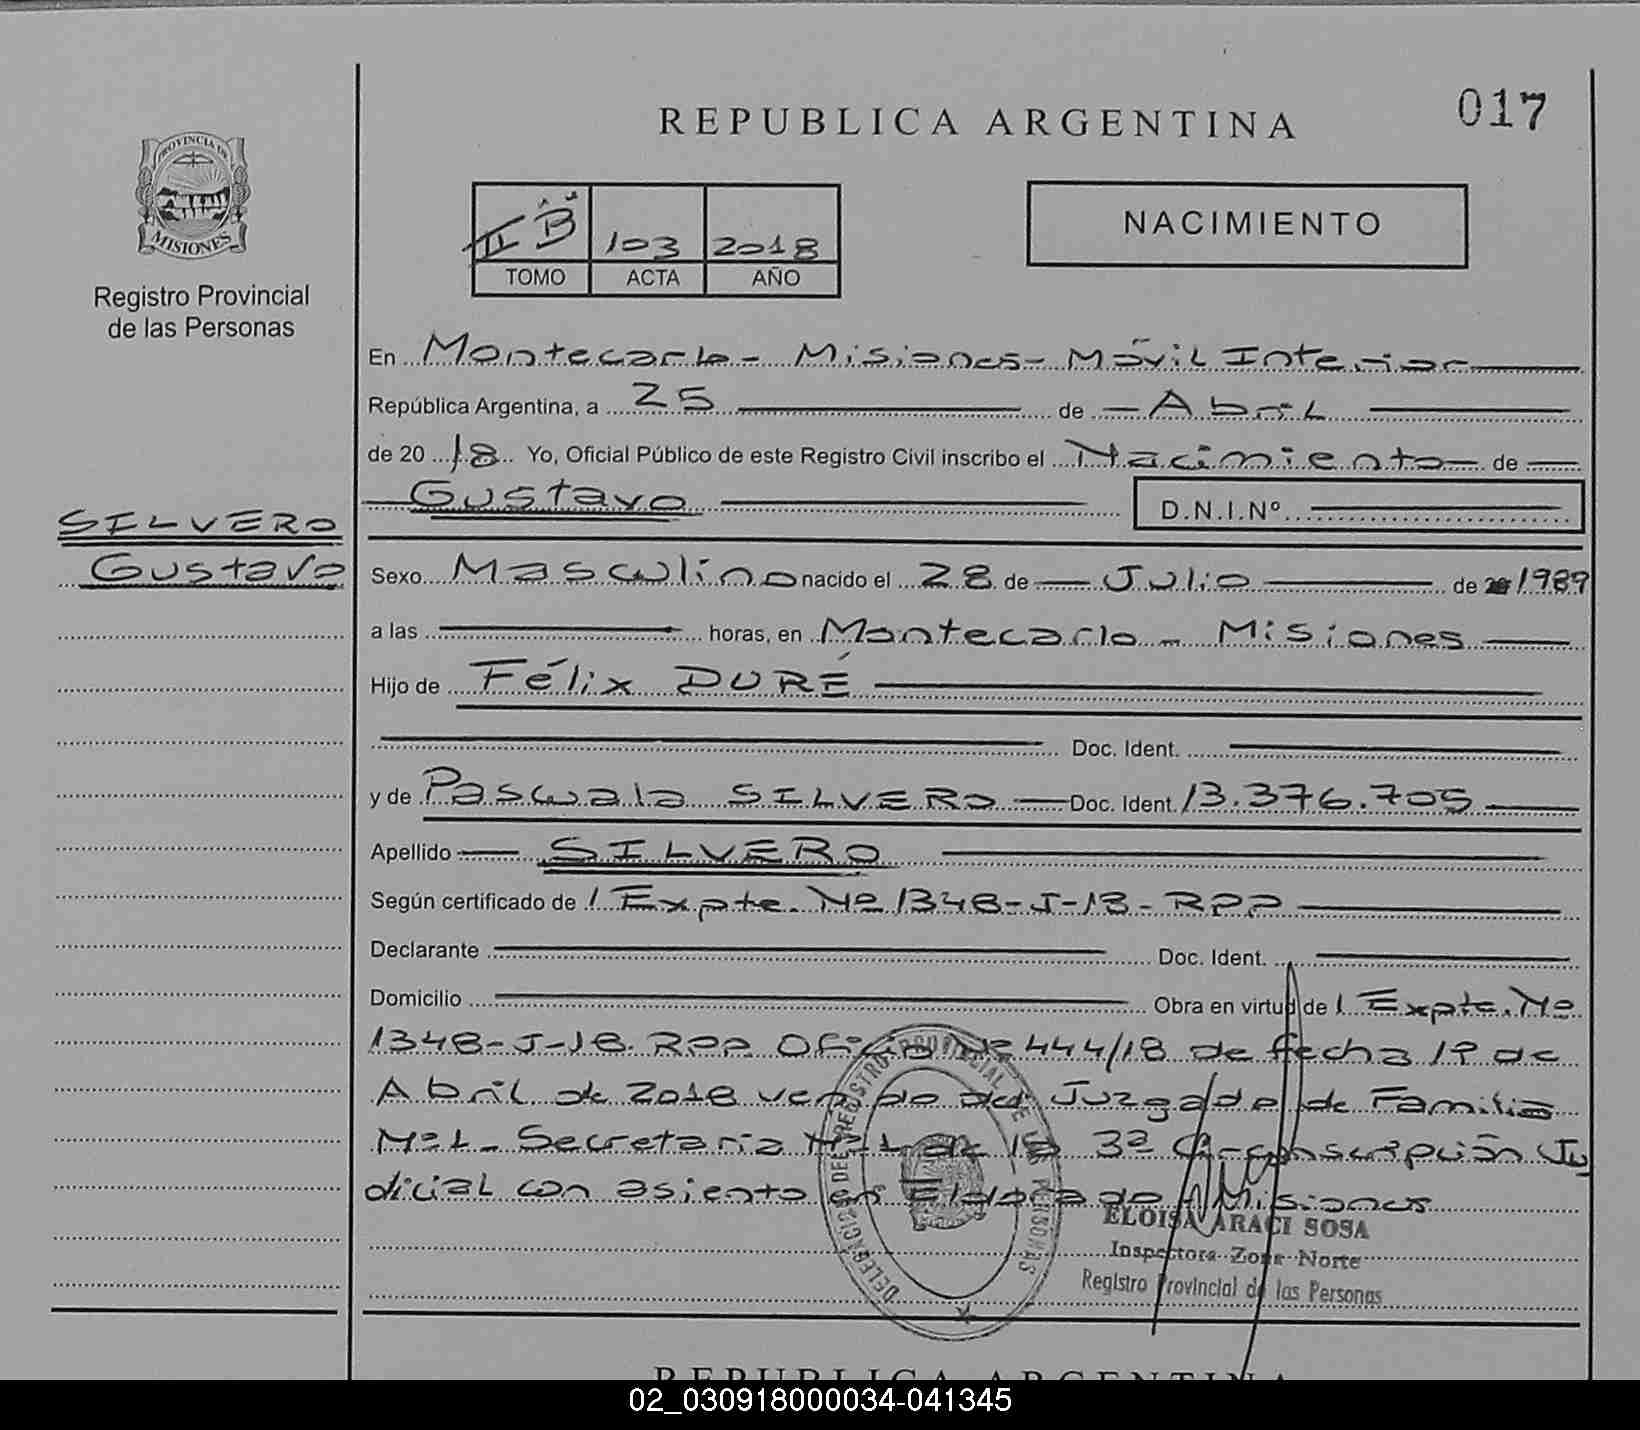 REPUBLICA ARGENTINA
017
PROVINCIA DE
MISIONES
Registro Provincial
de las Personas
II B 103 2018
TOMO ACTA AÑO
NACIMIENTO
En Montecarlo - Misiones - Móvil Interior
República Argentina, a 25 de Abril
de 20 18 Yo, Oficial Público de este Registro Civil inscribo el Nacimiento de
Gustavo D.N.I.Nº
SILVERO
Gustavo
Sexo Masculino nacido el 28 de Julio de 1989
a las horas, en Montecarlo - Misiones
Hijo de Félix DURÉ
Doc. Ident.
y de Pascuala SILVERO Doc. Ident. 13.376.705
Apellido SILVERO
Según certificado de / Expte. Nº 1348-J-18- RPP
Declarante Doc. Ident.
Domicilio Obra en virtud de / Expte. Nº
1348-J-18. RPP. Oficio Nº 444/18 de fecha 19 de
Abril de 2018 venido del Juzgado de Familia
Nº1- Secretaria Nº1 de la 3ª Circonscripción Ju
dicial con asiento en Eldorado Misiones
DELEGACION DEL REGISTRO PROVINCIAL DE LAS PERSONAS
ELOISA ARACI SOSA
Inspectora Zona Norte
Registro Provincial de las Personas
REPUBLICA ARGENTINA
02_030918000034-041345